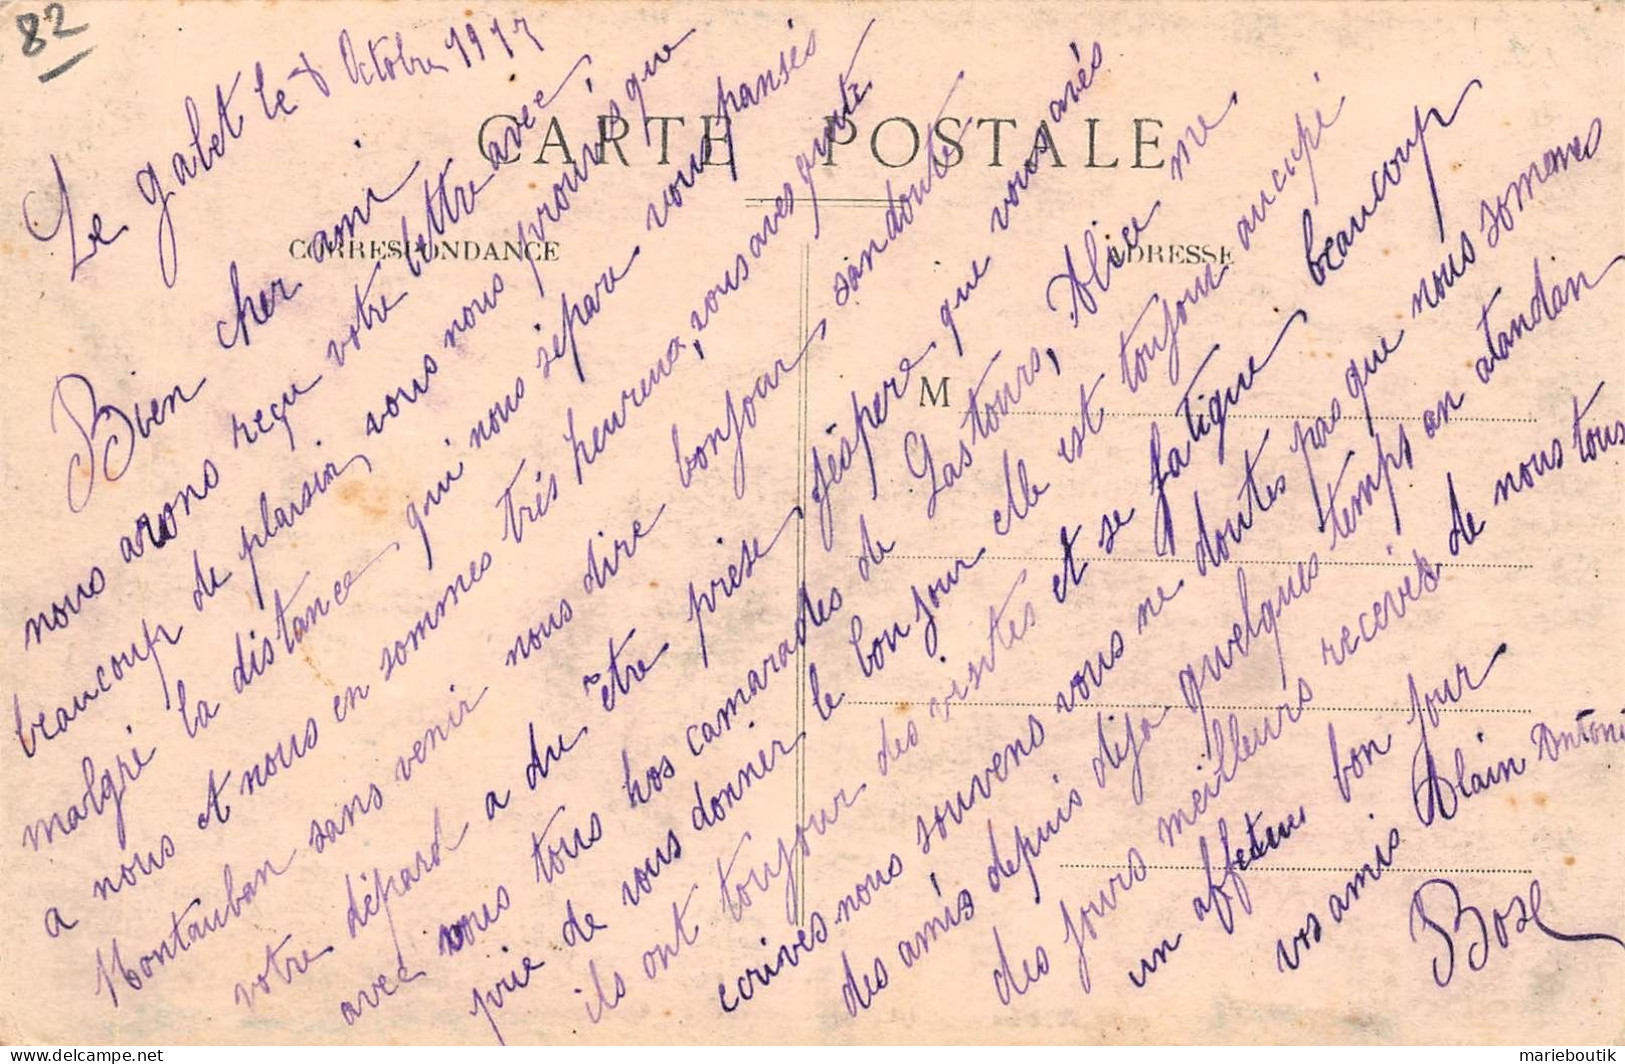 82
Le Galet le 8 Octobre 1917
CARTE POSTALE
CORRESPONDANCE
ADRESSE
M
Bien cher ami
nous avons reçu votre lettre avec
beaucoup de plaisir, vous nous prouvés que
malgré la distance qui nous sépare vous pansés
a nous et nous en sommes trés heureux, vous aves quité
Montauban sans venir nous dire bonjour, san doute
votre départ a du être prése, jéspere que vous avés
avec vous tous nos camarades de Lastours, Alice me
prie de vous donner le bonjour elle est toujour aucupé
ils ont toujour des visites et se fatigue beaucoup
ecrives-nous souvens vous ne doutes pas que nous somemes
des amis depuis déja quelques temps an atandan
des jours meilleurs recevez de nous tous
un affetueu bon jour
vos amis Alain Antoni
Bose
marieboutik